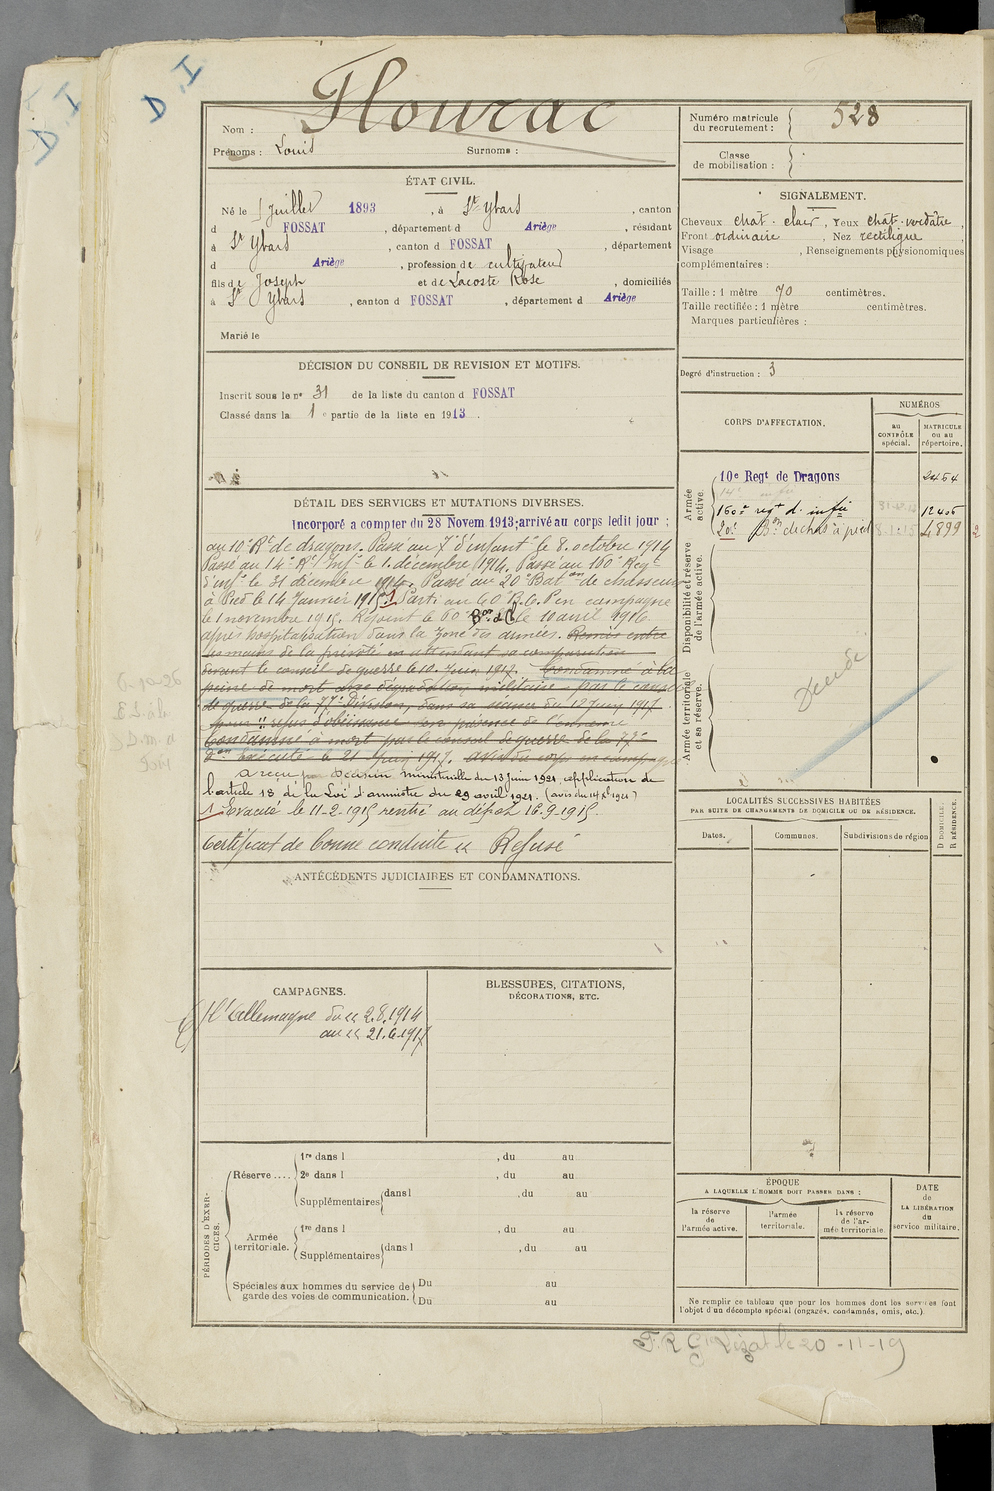 D.I
D.I
Flourac
Nom :
Prénoms : Louis Surnoms :
Numéro matricule
du recrutement : 528
Classe
de mobilisation :
ÉTAT CIVIL.
Né le 5 Juillet 1893, à St Ybars, canton
d FOSSAT, département d Ariège, résidant
à St Ybars, canton d FOSSAT, département
d Ariège, profession de cultivateur
fils de Joseph et de Lacoste Rose, domiciliés
à St Ybars, canton d FOSSAT, département d Ariège
Marié le
SIGNALEMENT.
Cheveux chat. clair, Yeux chat. verdâtre,
Front ordinaire, Nez rectiligne
Visage , Renseignements physionomiques
complémentaires :
Taille : 1 mètre 70 centimètres.
Taille rectifiée : 1 mètre centimètres.
Marques particulières :
Degré d'instruction : 3
DÉCISION DU CONSEIL DE REVISION ET MOTIFS.
Inscrit sous le no 31 de la liste du canton d FOSSAT
Classé dans la 1e partie de la liste en 1913.
CORPS D'AFFECTATION.
NUMÉROS
au
CONTRÔLE
spécial.
MATRICULE
ou au
répertoire.
Armée
active.
10e Regt de Dragons 2464
14e infie
160e regt d. infie 31-12-14 12405
20e Bon de chas à pied 8-1-15 4899
Disponibilité et réserve
de l'armée active.
Armée territoriale
et sa réserve.
Décédé
DÉTAIL DES SERVICES ET MUTATIONS DIVERSES.
Incorporé a compter du 28 Novem. 1913; arrivé au corps ledit jour ;
au 10e Rt de dragons. Passé au 7e d'infantie le 8 octobre 1914
Passé au 14e Rt Infie le 1 décembre 1914. Passé au 160e Régt
d'infie le 31 décembre 1914. Passé au 20e Baton de chasseurs
à Pied le 14 Janvier 1915. 1 Parti au 60e B.C.P en campagne
le 1 novembre 1915. Rejoint le 60e Bon d C le 10 avril 1916
après hospitalisation dans la zone des armées. Remis entre
les mains de la prévôté en attendant sa comparution
devant le conseil de guerre le 10 Juin 1917. Condamné à la
peine de mort avec dégradation militaire par le conseil
de guerre de la 77e Division, dans sa séance du 12 Juin 1917
pour " refus d'obéissance en présence de l'ennemi
Condamné à mort par le conseil de guerre de la 77e
Don Exécuté le 21 Juin 1917. Avis du corps en campagne
A reçu par décision ministérielle du 13 juin 1921, application de
l'article 18 de la Loi d'amnistie du 29 avril 1921.
1 Évacué le 11-2-1915 rentré au dépôt 16-9-1915
Certificat de bonne conduite " Refusé
ANTÉCÉDENTS JUDICIAIRES ET CONDAMNATIONS.
LOCALITÉS SUCCESSIVES HABITÉES
PAR SUITE DE CHANGEMENTS DE DOMICILE OU DE RÉSIDENCE.
Dates. Communes. Subdivisions de région
D DOMICILE.
R RÉSIDENCE.
CAMPAGNES.
Ct l'Allemagne du " 2.8.1914
au " 21.6.1917
BLESSURES, CITATIONS,
DÉCORATIONS, ETC.
PÉRIODES D'EXERCICES.
Réserve....
1re dans l , du au
2e dans l , du au
Supplémentaires dans l , du au
Armée
territoriale.
1re dans l , du au
Supplémentaires dans l , du au
Spéciales aux hommes du service de
garde des voies de communication.
Du au
Du au
ÉPOQUE
A LAQUELLE L'HOMME DOIT PASSER DANS :
la réserve
de
l'armée active.
l'armée
territoriale.
la réserve
de l'ar-
mée territoriale.
DATE
de
LA LIBÉRATION
du
service militaire.
Ne remplir ce tableau que pour les hommes dont les services font
l'objet d'un décompte spécial (engagés, condamnés, omis, etc.).
20-11-19